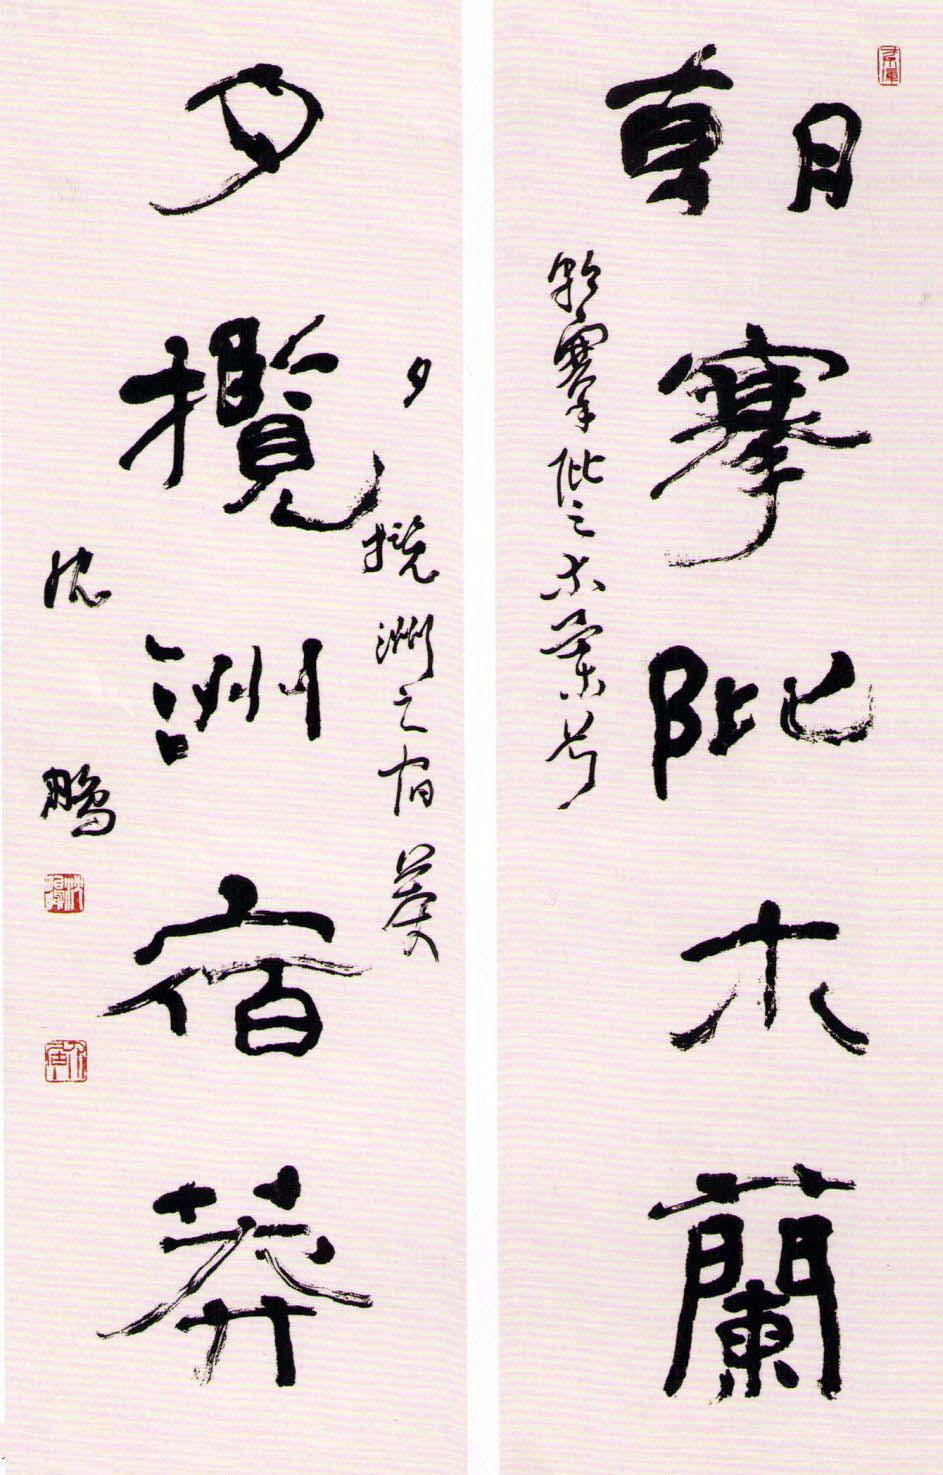 朝搴阰木蘭
朝搴阰之木蘭兮
夕攬洲之宿莽
夕攬洲宿莽
沈鵬